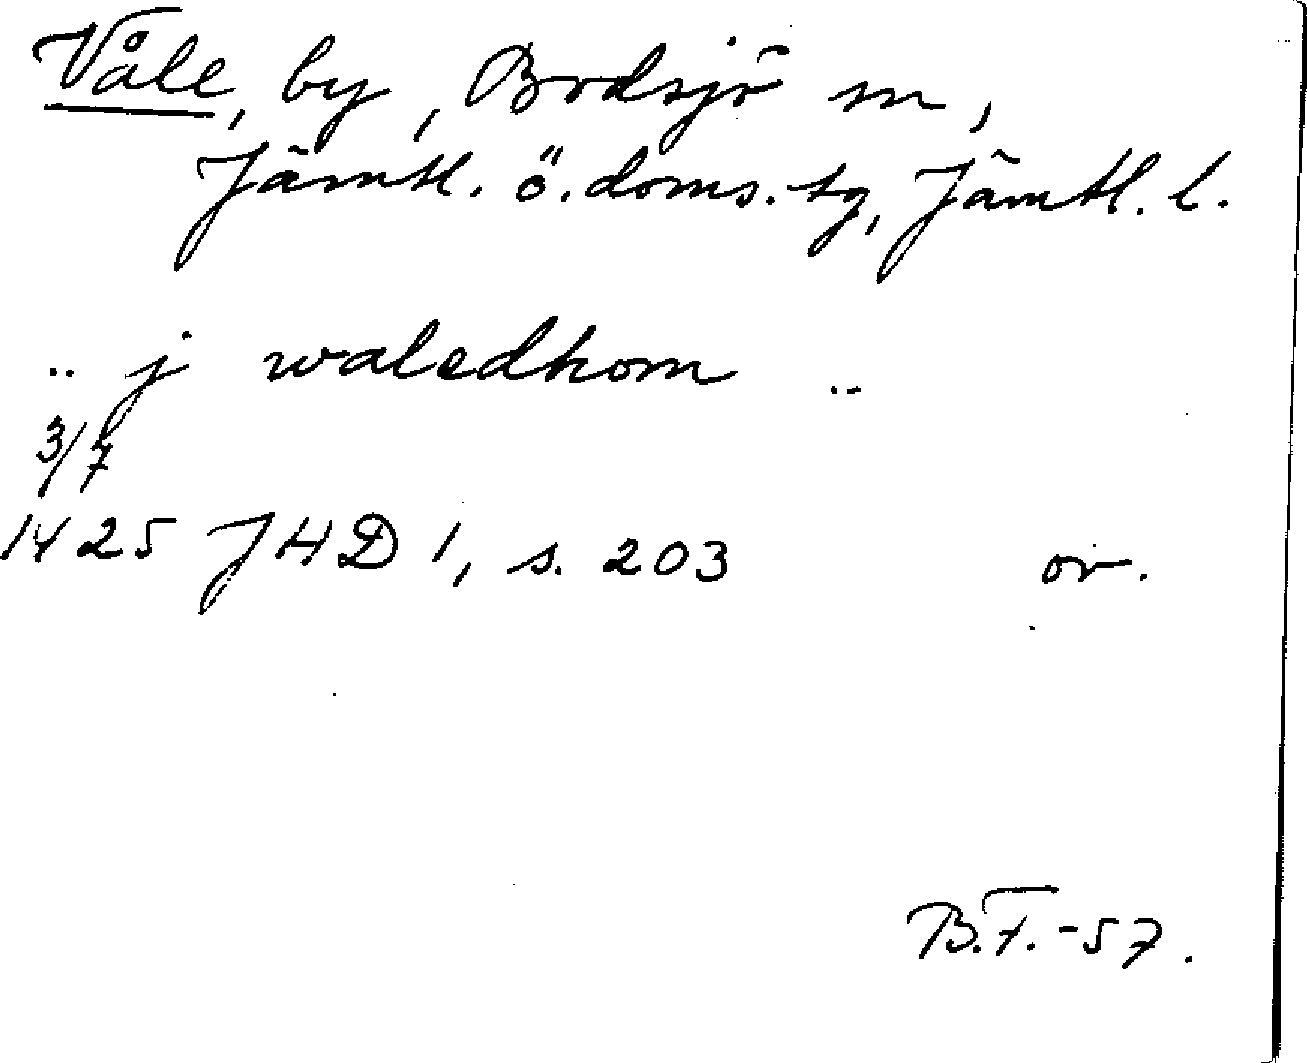 Våle, by, Bodsjö sn,
Jämtl. ö. doms. tg, Jämtl. l.
.. j waledhom ..
3/7
1425 JHD 1, s. 203 or.
B.F.-57.